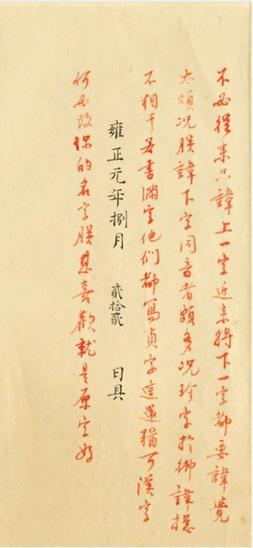 不必從来只諱上一字近来将下一字都要諱覺
太煩况朕諱下字同音者頗多况珍字於御諱總
不相干若書滿字他們都寫貞字這還猶可漢字
雍正元年捌月 貳拾貳 日具
何必改你的名字朕甚喜歡就是原字好